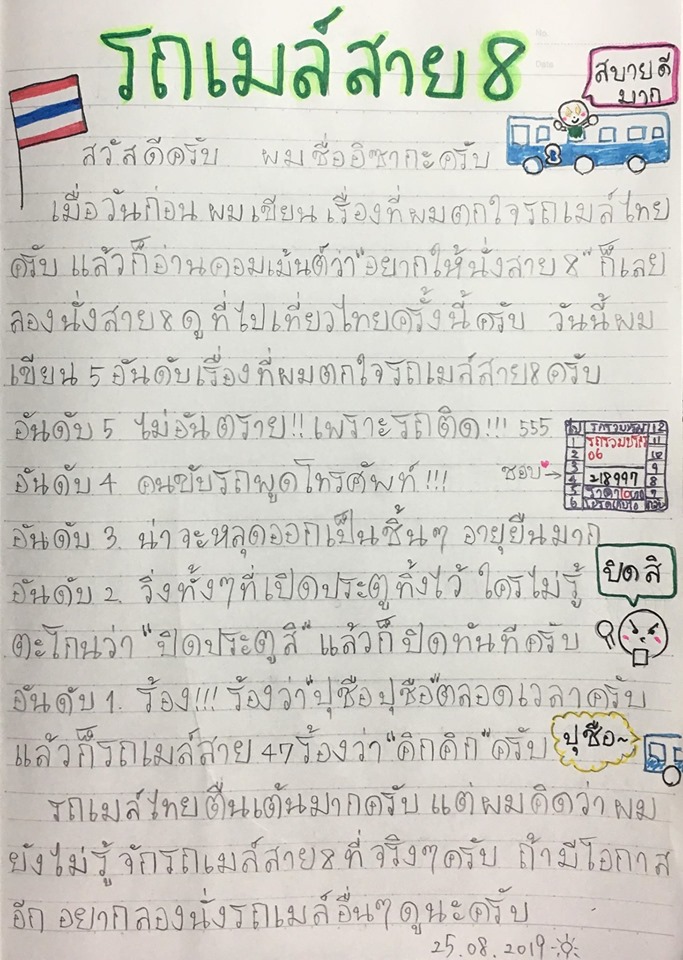 รถเมล์สาย 8
สบายดี
มาก
8
สวัสดีครับ ผมชื่ออิซากะครับ
เมื่อวันก่อน ผมเขียนเรื่องที่ผมตกใจรถเมล์ไทย
ครับ แล้วก็อ่านคอมเม้นต์ว่า"อยากให้นั่งสาย 8" ก็เลย
ลองนั่งสาย8ดู ที่ไปเที่ยวไทยครั้งนี้ครับ วันนี้ผม
เขียน 5 อันดับเรื่องที่ผมตกใจรถเมล์สาย8ครับ
อันดับ 5 ไม่อันตราย!! เพราะรถติด!!! 555
อันดับ 4 คนขับรถพูดโทรศัพท์ !!!
ชอบ→
1 11
2 06
3 9
4 218997 8
5 ราคา
6
อันดับ 3. น่าจะหลุดออกเป็นชิ้นๆ อายุยืนมาก
อันดับ 2. วิ่งทั้งๆที่เปิดประตูทิ้งไว้ ใครไม่รู้
ปิดสิ
ตะโกนว่า "ปิดประตูสิ" แล้วก็ปิดทันทีครับ
อันดับ 1. ร้อง!!! ร้องว่า"ปุชือปุชือ"ตลอดเวลาครับ
แล้วก็รถเมล์สาย 47ร้องว่า"คิกคิก"ครับ
ปุชือ~
รถเมล์ไทยตื่นเต้นมากครับ แต่ผมคิดว่าผม
ยังไม่รู้จักรถเมล์สาย8ที่จริงๆครับ ถ้ามีโอกาส
อีก อยากลองนั่งรถเมล์อื่นๆดูนะครับ
25.08.2019